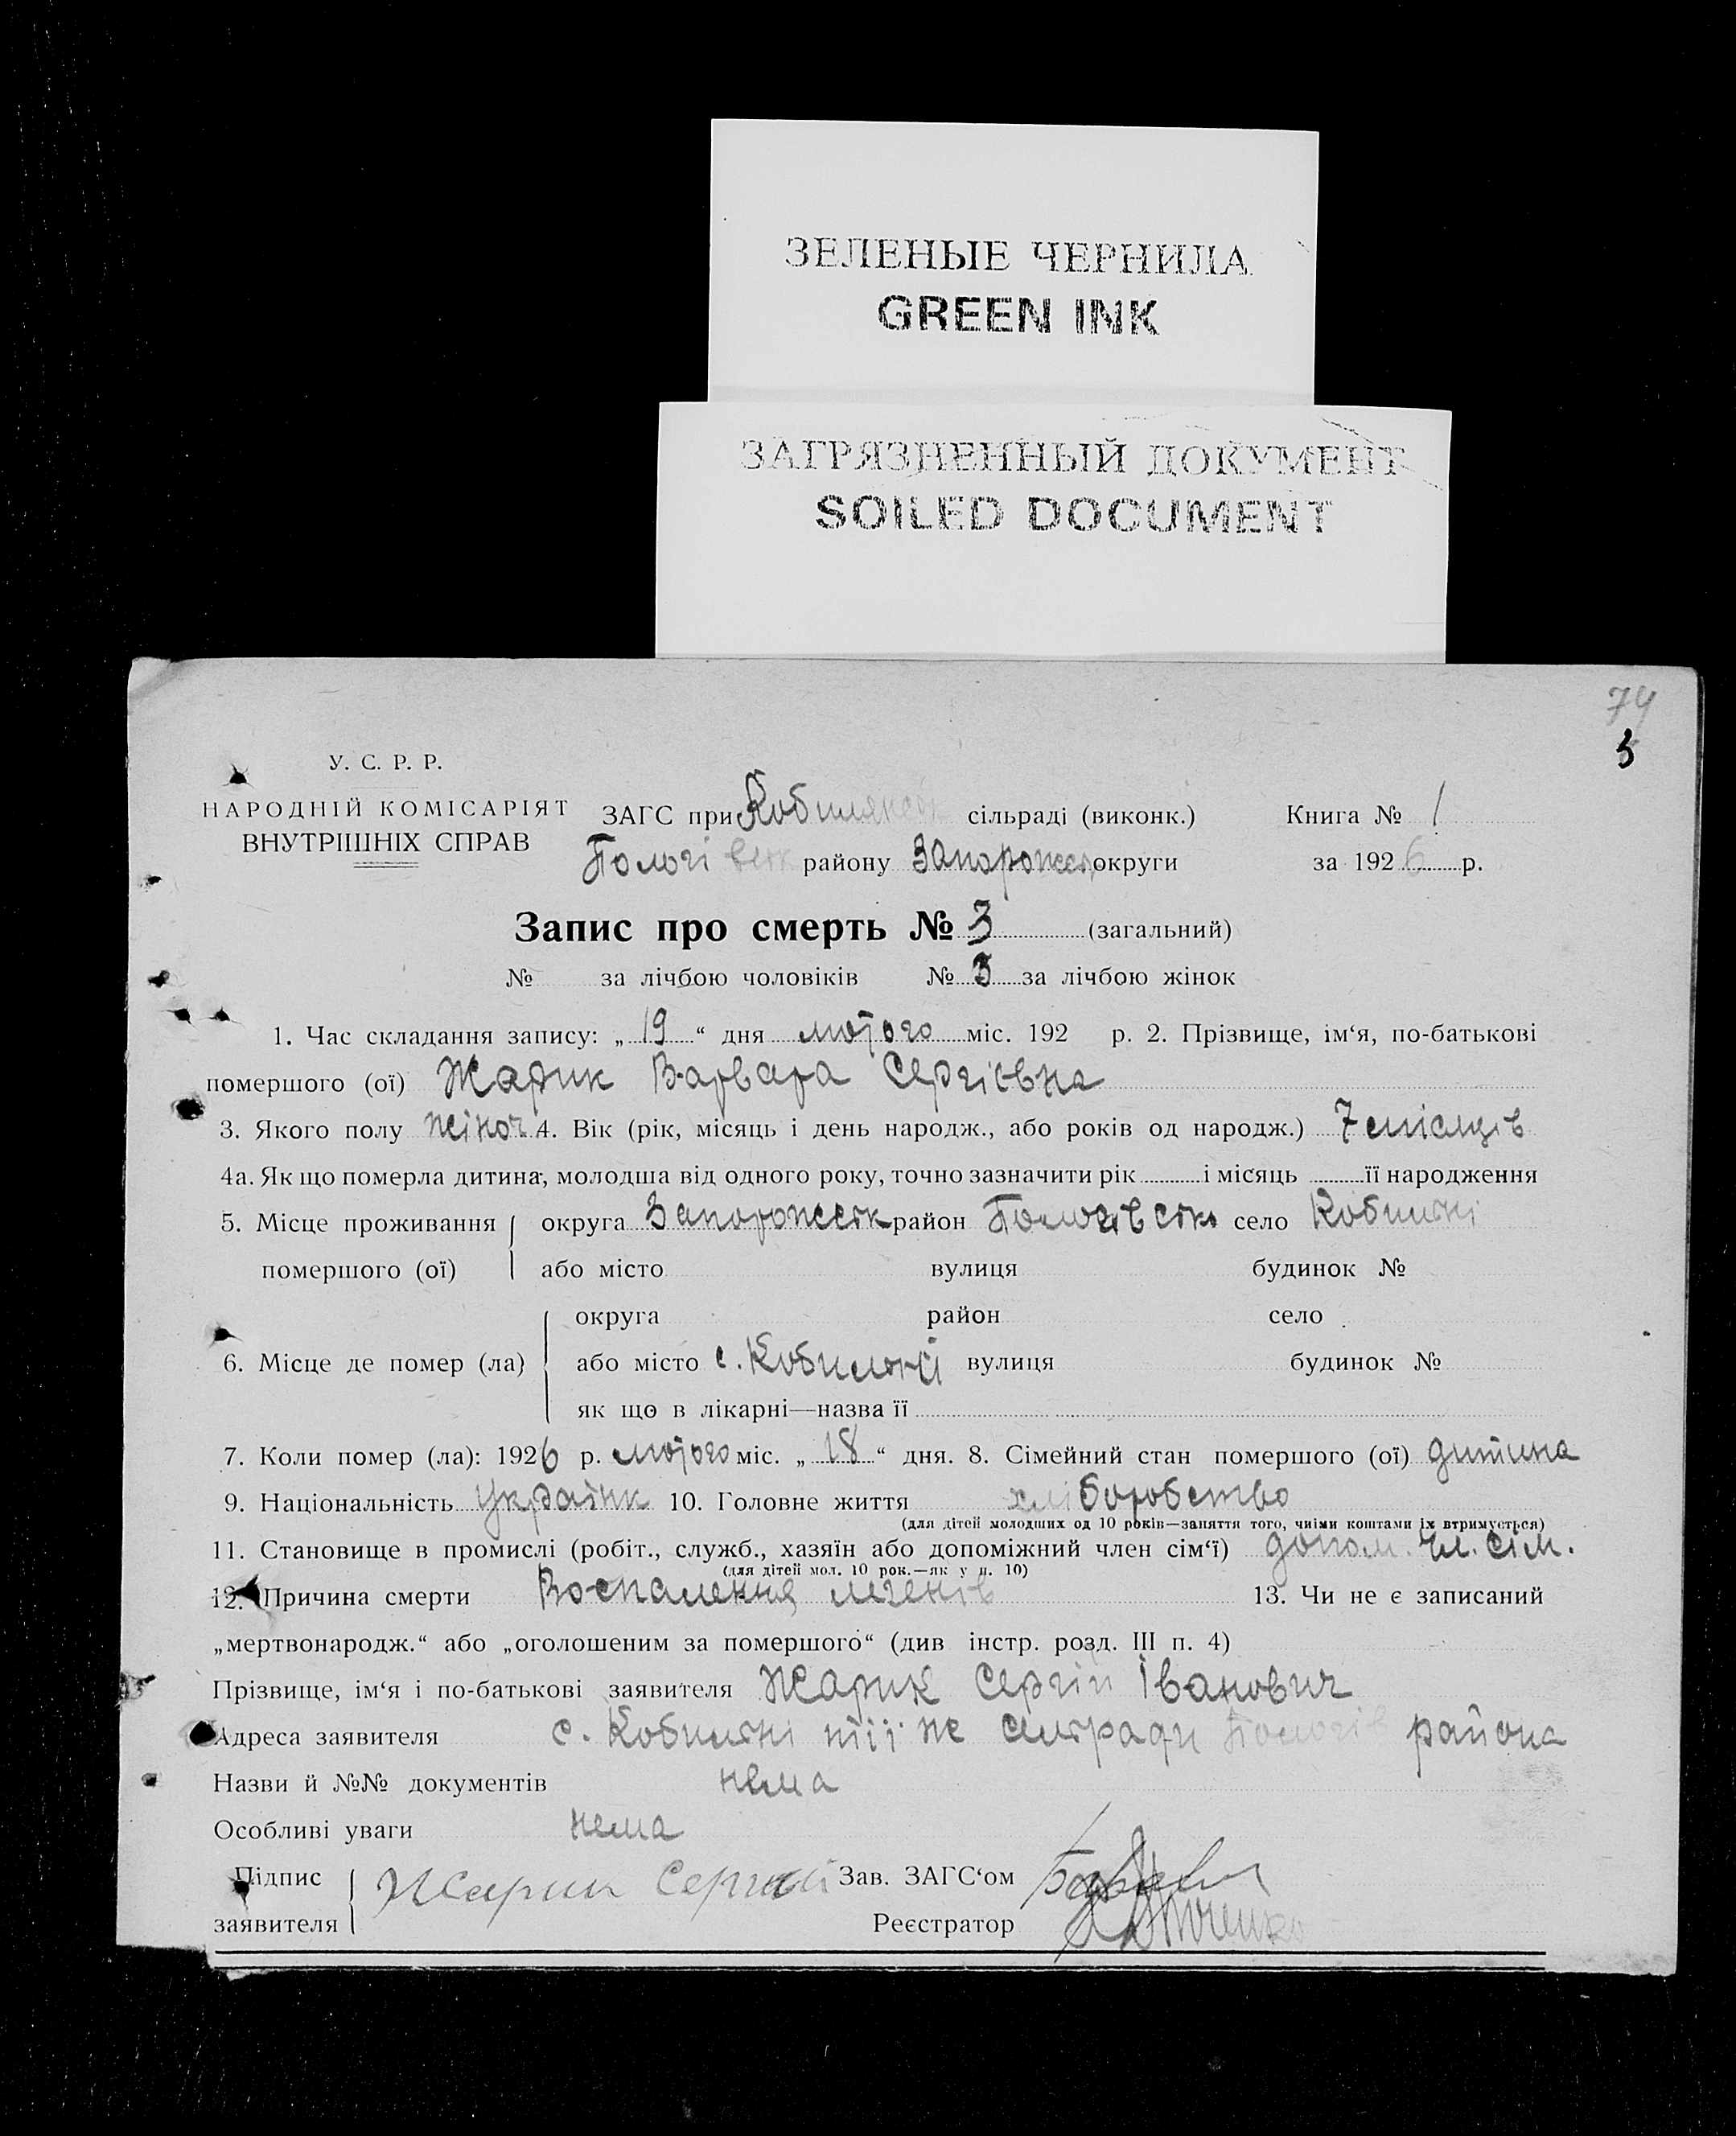 ЗЕЛЕНЫЕ ЧЕРНИЛА
GREEN INK
ЗАГРЯЗНЕННЫЙ ДОКУМЕНТ
SOILED DOCUMENT
74
3
У. С. Р. Р.
НАРОДНІЙ КОМІСАРІЯТ
ВНУТРІШНІХ СПРАВ
ЗАГС при сільраді (виконк.) Книга № 1
району Запорожськ округи за 1926 р.
Запис про смерть № 3 (загальний)
№ за лічбою чоловіків № 3 за лічбою жінок
1. Час складання запису: „19“ дня лютого міс. 192 р. 2. Прізвище, ім‘я, по-батькові
помершого (ої) Жарик Варвара Сергієвна
3. Якого полу жіноч 4. Вік (рік, місяць і день народж., або років од народж.) 7 місяців
4а. Як що померла дитина, молодша від одного року, точно зазначити рік і місяць її народження
5. Місце проживання округа Запорожськ район Пологівськ село
помершого (ої) або місто вулиця будинок №
округа район село
6. Місце де помер (ла) або місто с. вулиця будинок №
як що в лікарні—назва її
7. Коли помер (ла): 1926 р. лютого міс. „18“ дня. 8. Сімейний стан помершого (ої) дитина
9. Національність Українк 10. Головне життя хліборобство
(для дітей молодших од 10 років—заняття того, чиїми коштами їх втримується)
11. Становище в промислі (робіт., служб., хазяїн або допоміжний член сім‘ї) допом. чл. сім.
(для дітей мол. 10 рок.—як у п. 10)
12. Причина смерти Воспалення легенів 13. Чи не є записаний
„мертвонародж.“ або „оголошеним за помершого“ (див інстр. розд. III п. 4)
Прізвище, ім‘я і по-батькові заявителя Жарик Сергій Іванович
Адреса заявителя с. тії ж сильради Пологів района
Назви й №№ документів нема
Особливі уваги нема
Підпис Жарик Сергей Зав. ЗАГС‘ом
заявителя Реєстратор